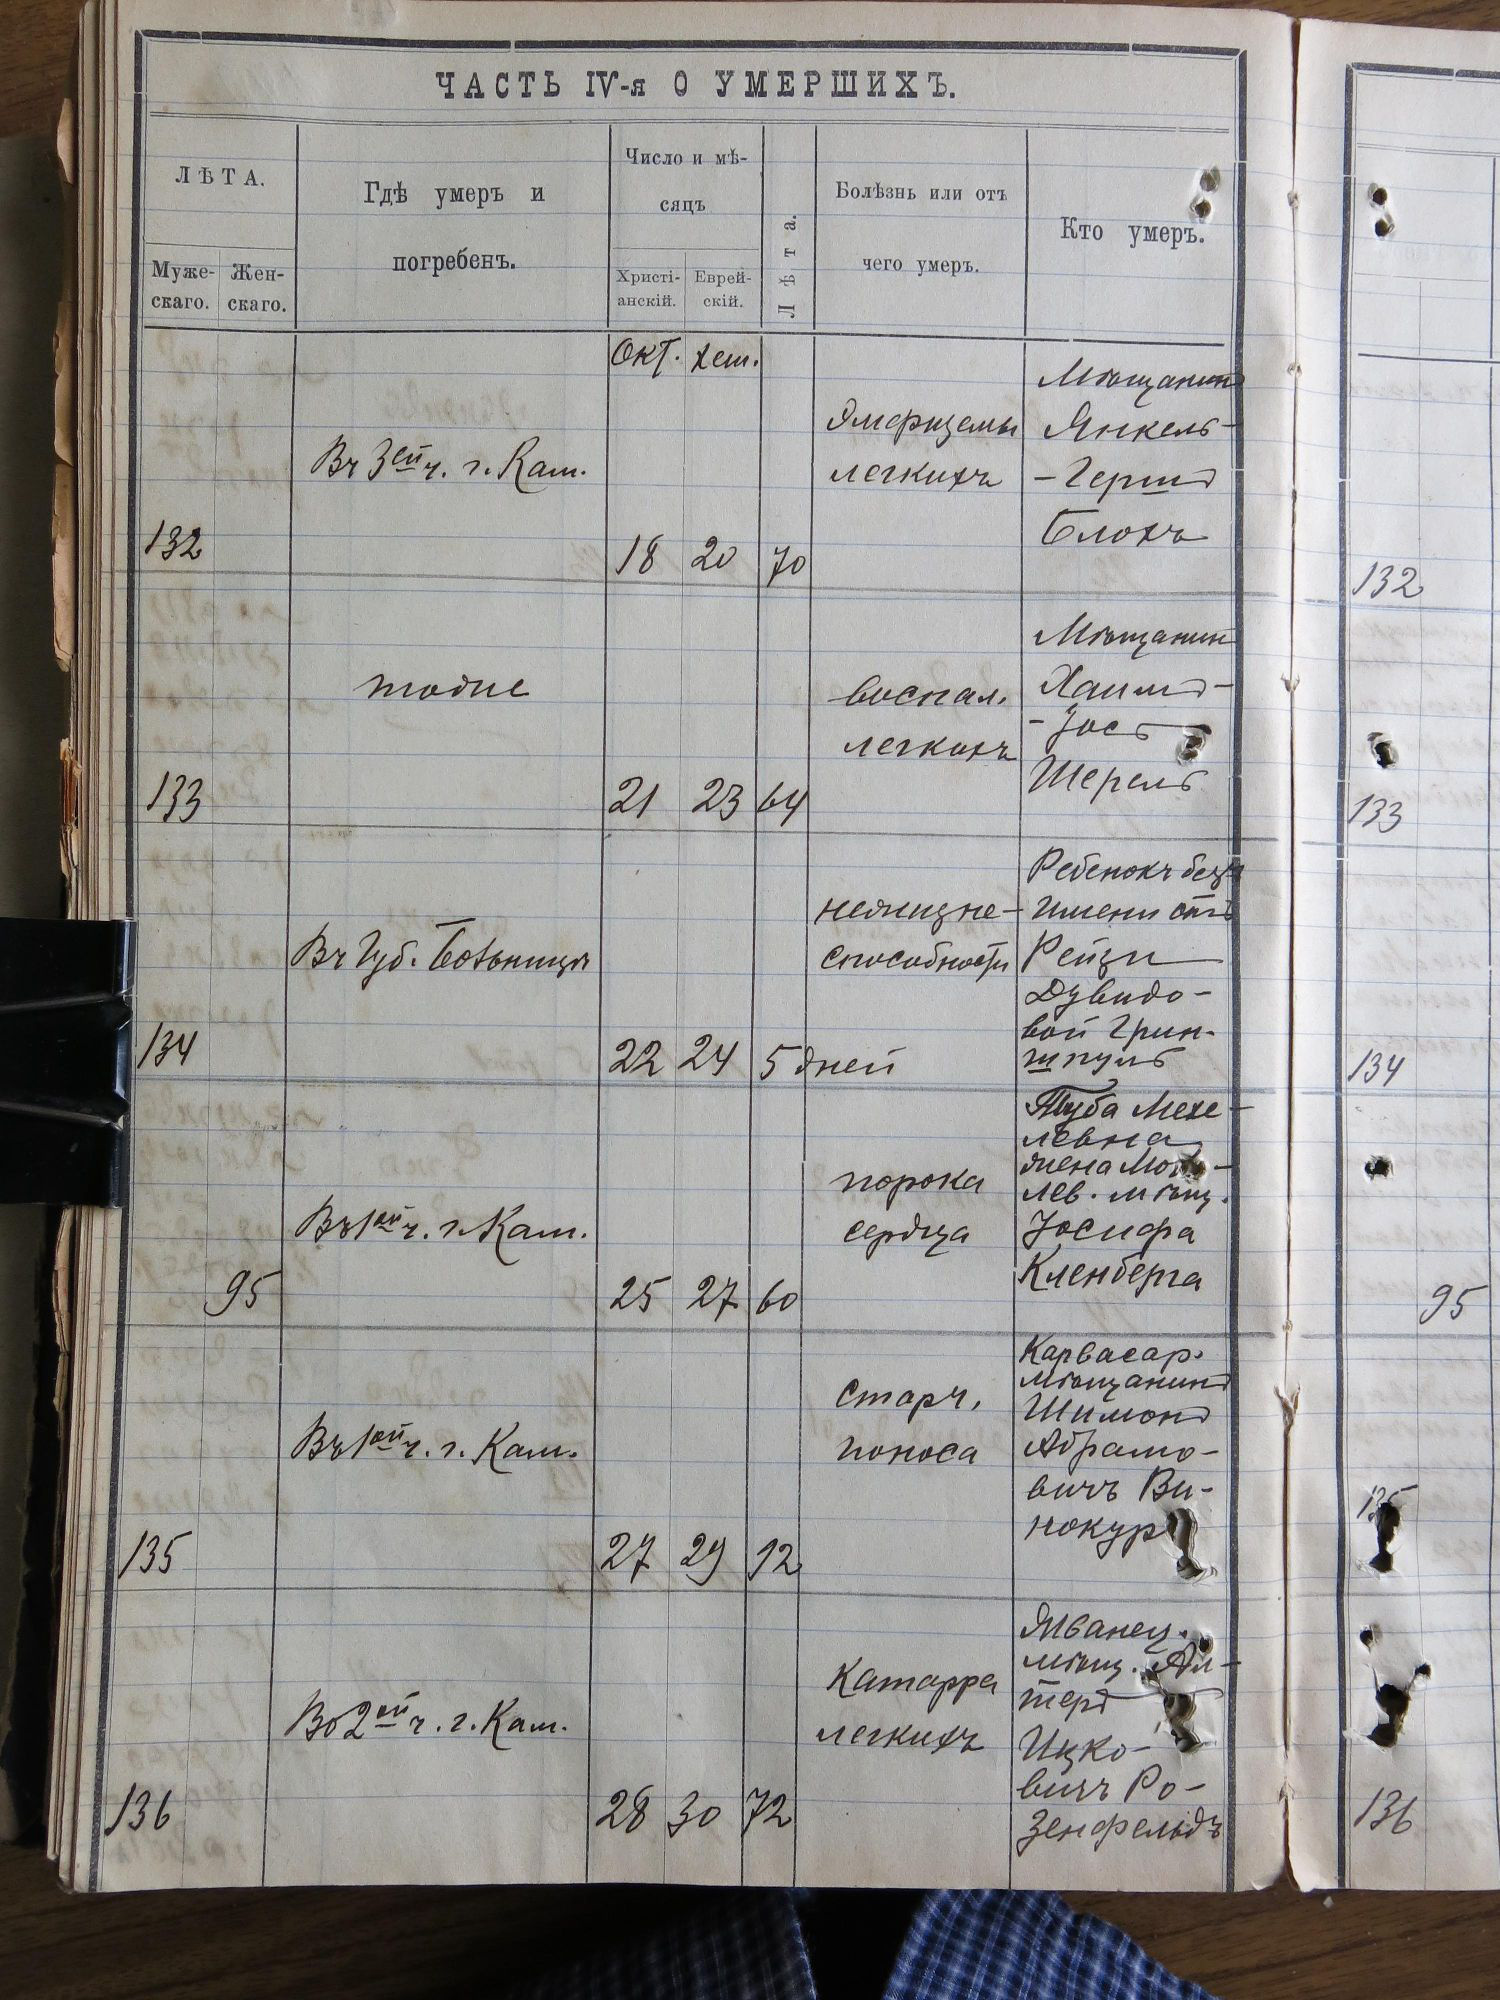 ЧАСТЬ IV-я О УМЕРШИХЪ.
ЛѢТА.
Муже-
скаго.
Жен-
скаго.
Гдѣ умеръ и
погребенъ.
Число и мѣ-
сяцъ
Христі-
анскій.
Еврей-
скій.
Лѣта.
Болѣзнь или отъ
чего умеръ.
Кто умеръ.
Окт. хеш.
132
Въ 3ей ч. г. Кам.
18 20 70
Эмфиземы
легкихъ
Мѣщанинъ
Янкель-
-Гершъ
Блохъ
132
133
тоже
21 23 64
воспал.
легкихъ
Мѣщанинъ
Хаимъ-
-Іось
Шерель
133
134
Въ Губ. Больницѣ
22 24 5 дней
нежизне-
способности
Ребенокъ безъ
имени отъ
Рейзи
Дувидо-
вой Грин-
шпуль
134
95
Въ 1ой ч. г. Кам.
25 27 60
порока
сердца
Туба Мехе-
левна
жена
лев. мѣщ.
Іосифа
Кленберга
95
135
Въ 1ой ч. г. Кам.
27 29 72
старч.
поноса
Карвасар.
мѣщанинъ
Шимонъ
Абрамо-
вичъ Ви-
нокур
135
136
Во 2ой ч. г. Кам.
28 30 72
Катарра
легкихъ
Жванец.
мѣщ. Ал-
теръ
Ицко-
вичъ Ро-
зенфельдъ
136